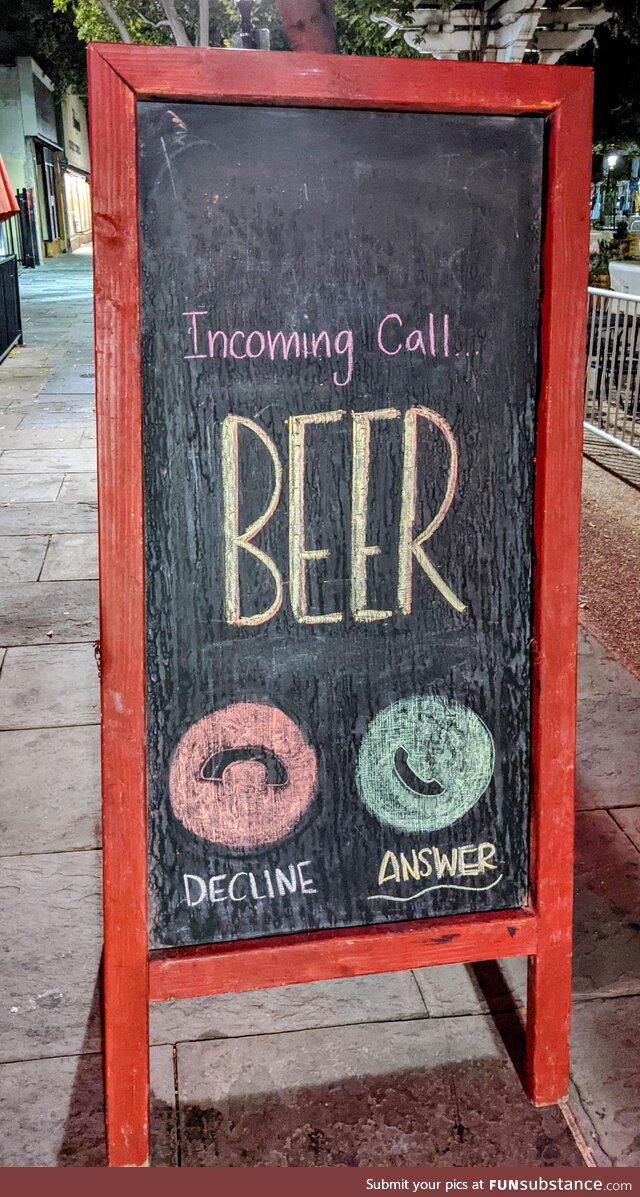 Incoming Call...
BEER
DECLINE ANSWER
Submit your pics at FUNsubstance.com